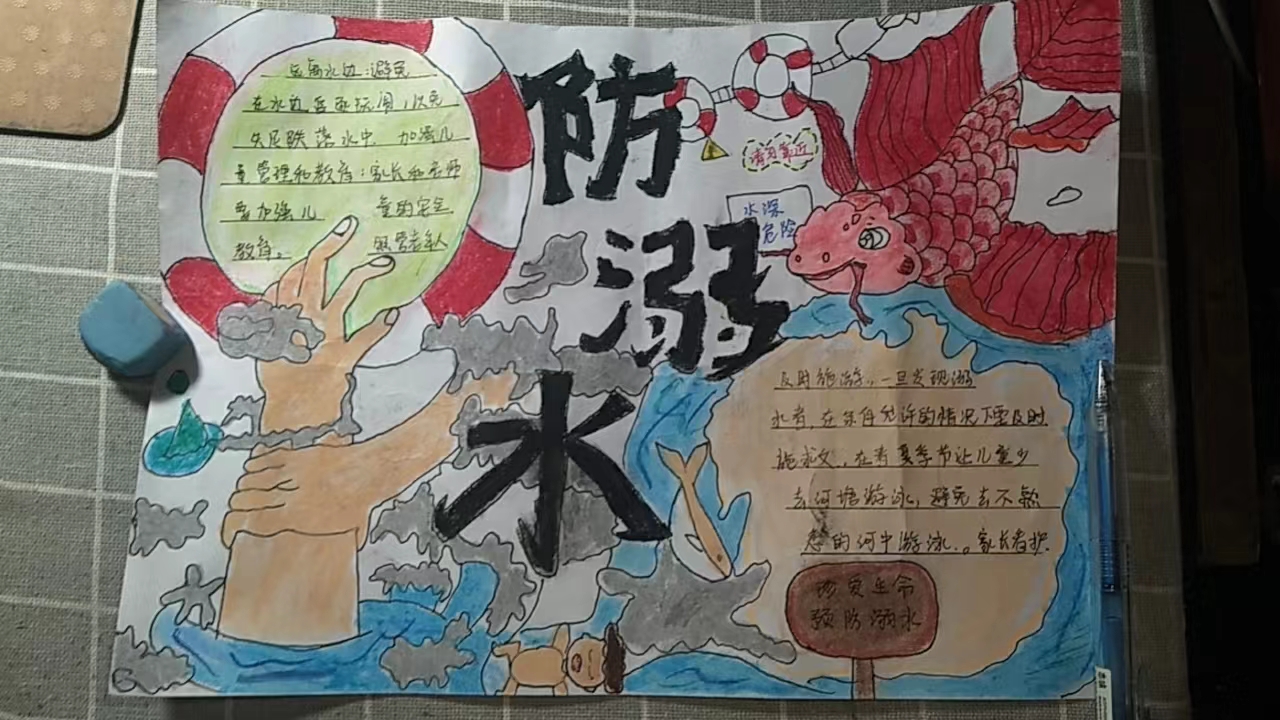 远离水边:避免
在水边岳边玩闹,以免
失足跌落水中 加强儿
童管理和教育:家长和老师
要加强儿 童的安全
教育。 照管老年人
防
溺
水
请勿靠近
水深
危险
及时施游,一旦发现溺
水者,在条件允许的情况下要及时
施求父,在青夏季节让儿童少
去河塘游泳,避免去不熟
悉的河中游泳.。家长看护.
珍爱生命
预防溺水